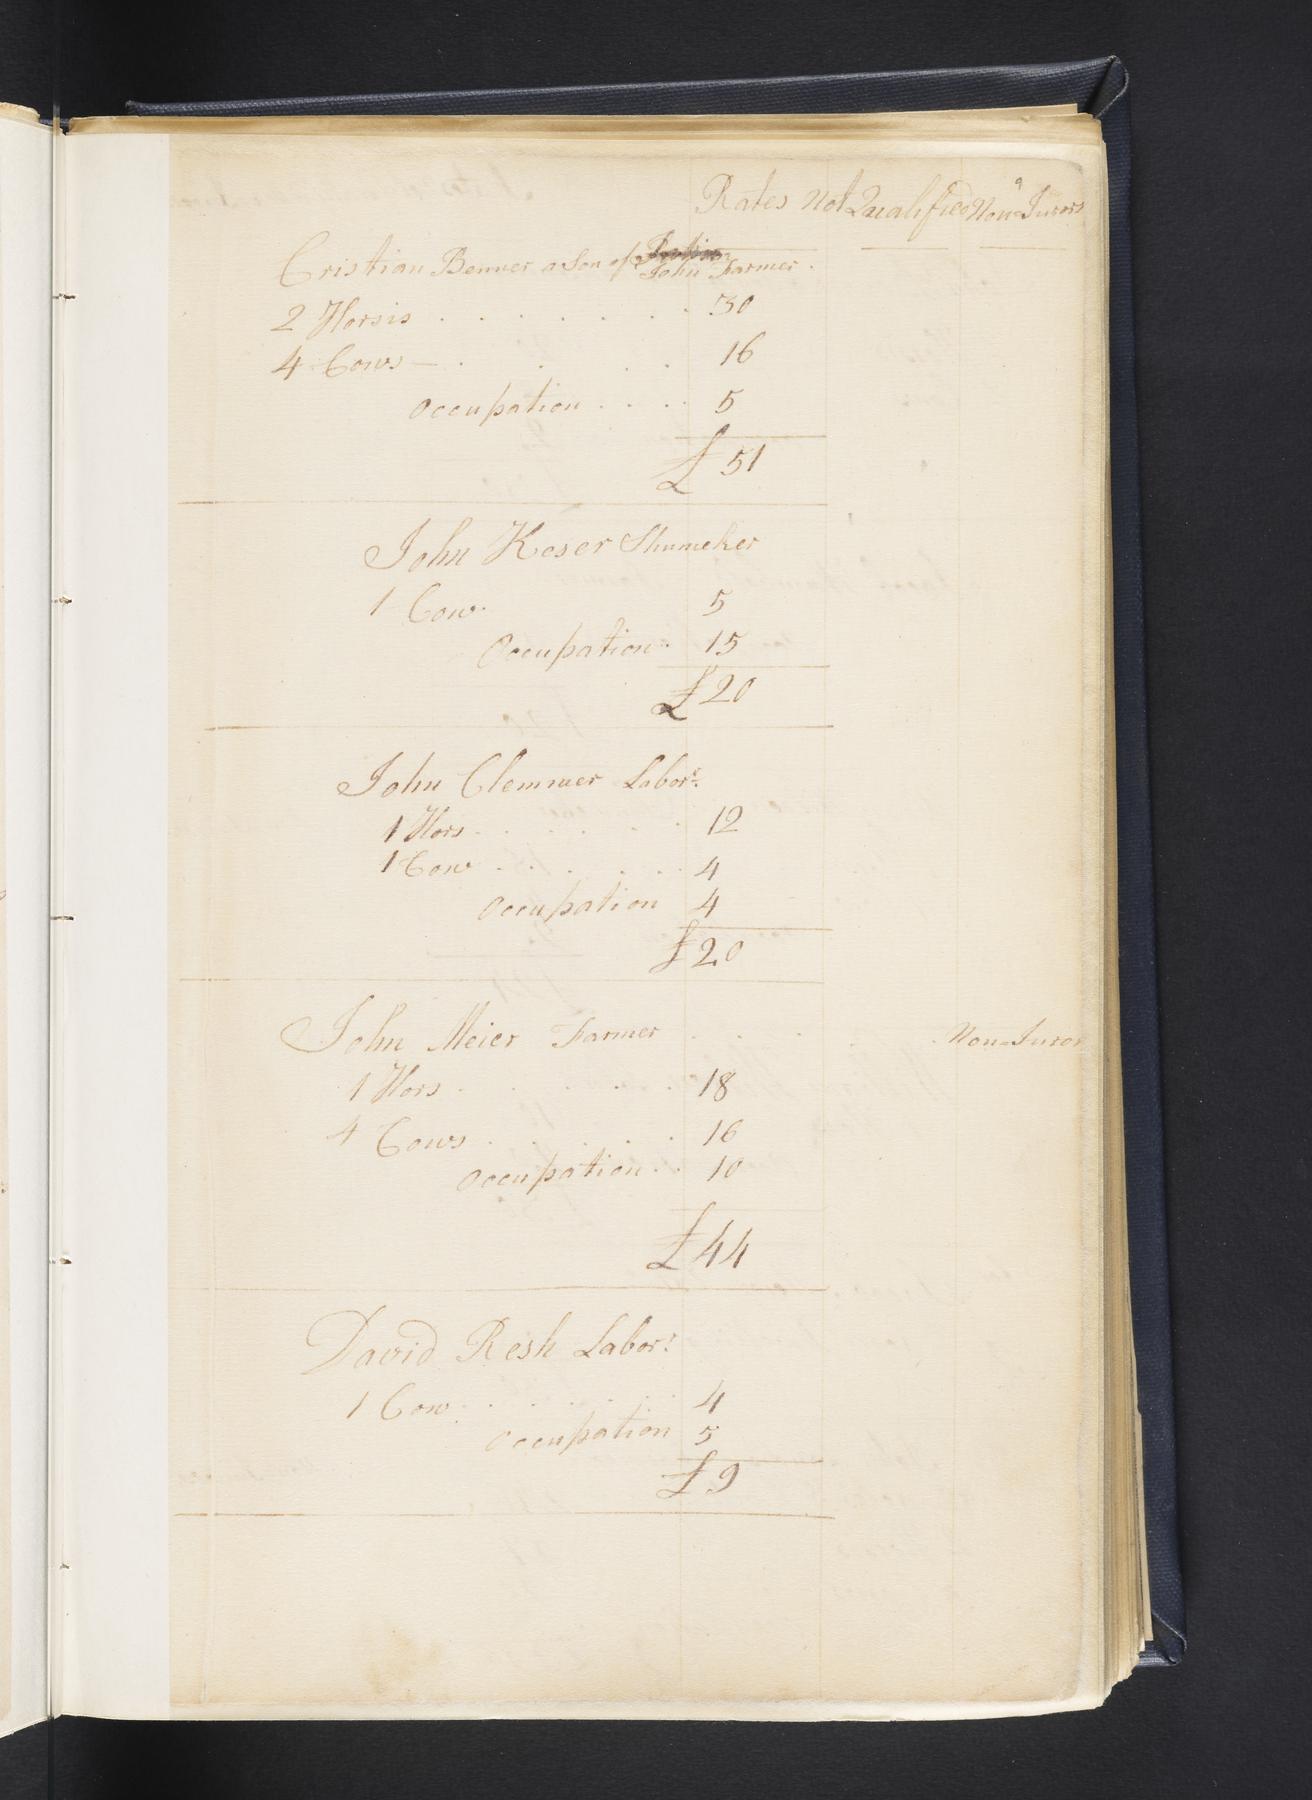 9
Rates Not Qualified Non=Jurors
Cristian Benner a Son of John Farmer.
2 Horsis . . . . . . . 30
4 Cows — . . . . 16
Occupation . . . . 5
£ 51
John Keser Shumeker
1 Cow. 5
Occupation . 15
£ 20
John Clemmer Labor.r
1 Hors . . . . . . 12
1 Cow . . . . . . 4
Occupation 4
£ 20
John Meier Farmer . . . . Non=Juror
1 Hors . . . . . 18
4 Cows . . . . . 16
Occupation . . 10
£ 44
David Resh Labor.r
1 Cow . . . . . . 4
Occupation 5
£ 9